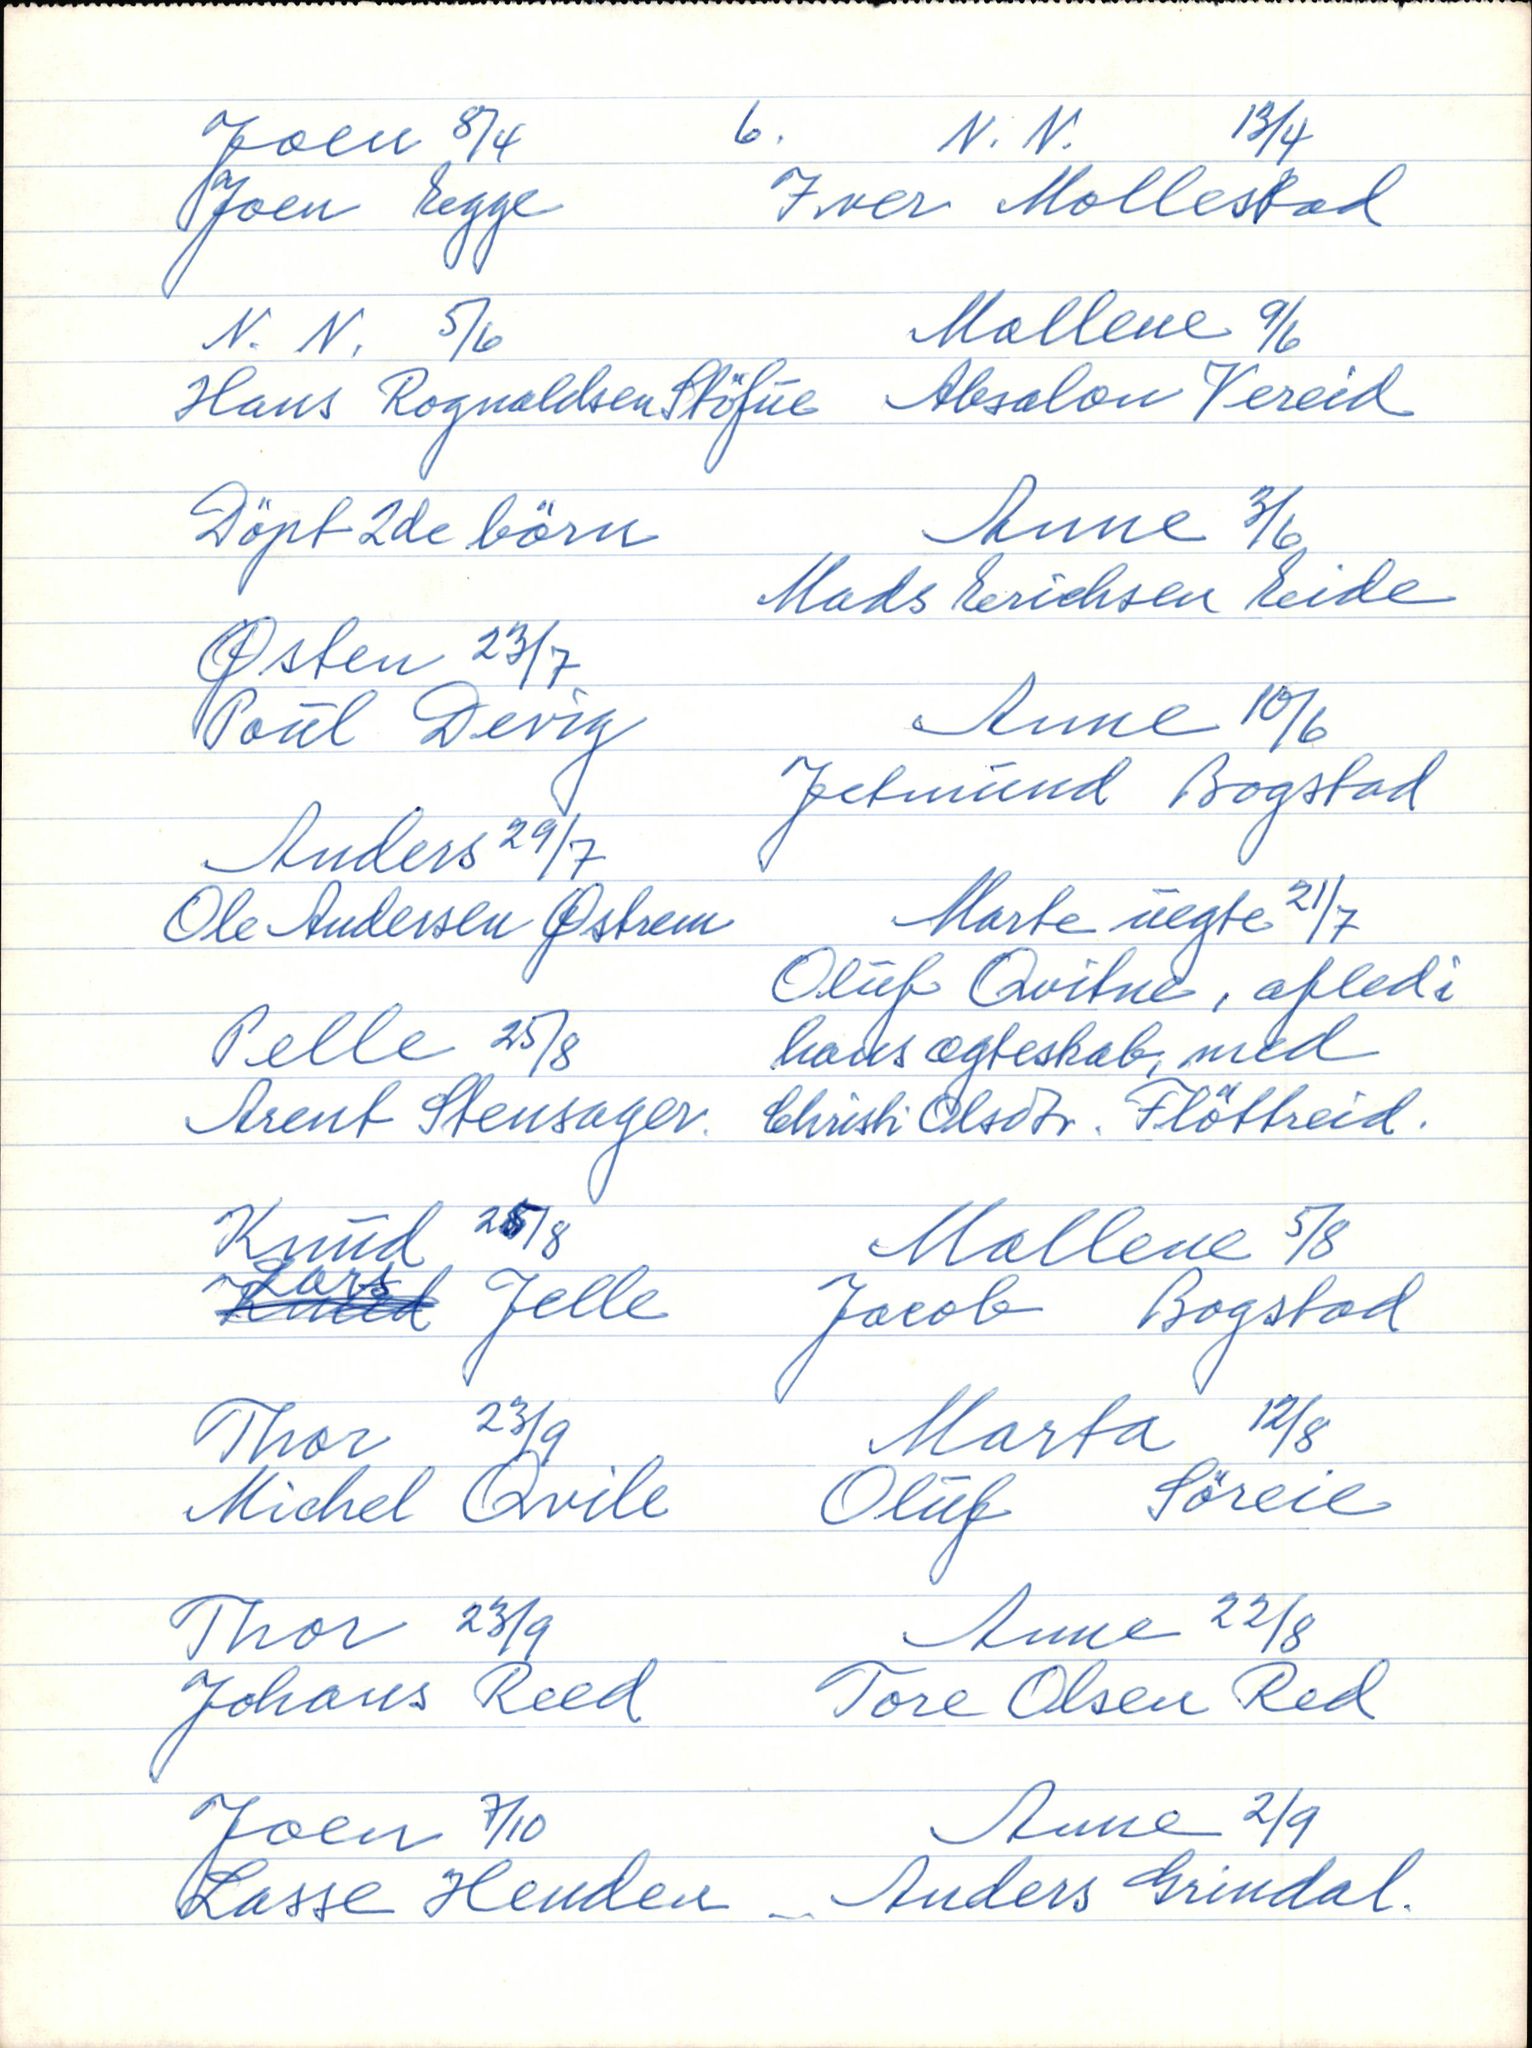 6.
Joen 8/4
Joen Egge

N. N. 5/6
Hans Rognaldsen Stöfûe

Döpt 2de börn

Østen 23/7
Poûl Devig

Anders 29/7
Ole Andersen Østrem

Pelle 25/8
Arent Stensager.

Knûd 25/8
Lars Jelle

Thor 23/9
Michel Qvile

Thor 23/9
Johans Reed

Joen 7/10
Lasse Henden

N. N. 13/4
Iver Mollestad

Mallene 9/6
Absalon Vereid

Anne 3/6
Mads Erichsen Eide

Anne 10/6
Jetmûnd Bogstad

Marte ûegte 21/7
Olûf Qvitne, afled i
hans ægteskab, med
Christi Olsdtr. Flöttreid.

Mallene 5/8
Jacob Bogstad

Marta 12/8
Olûf Söreie

Anne 22/8
Tore Olsen Red

Anne 2/9
Anders Grindal.